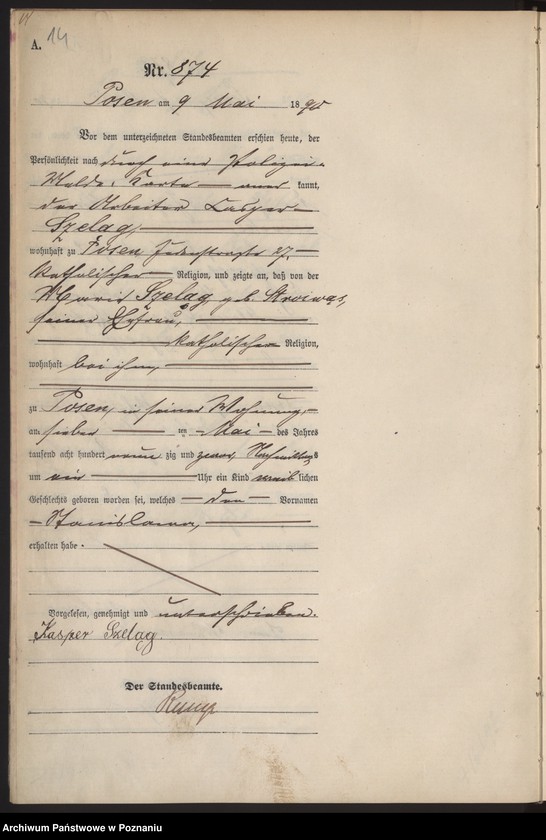 A. 14
Nr. 874
Posen am 9 Mai 1890
Vor dem unterzeichneten Standesbeamten erschien heute, der
Persönlichkeit nach durch eine Polizei-
Melde-Karte aner kannt,
der Arbeiter Casper
Szeląg,
wohnhaft zu Posen 27.
katholischer Religion, und zeigte an, daß von der
Maria Szeląg geb.
seiner Ehefrau,
katholischer Religion,
wohnhaft bei ihm,
zu Posen, in seiner Wohnung,
am sieben ten Mai des Jahres
tausend acht hundert neun zig und zwar Nachmittags
um ein Uhr ein Kind weib lichen
Geschlechts geboren worden sei, welches den Vornamen
Stanislawa,
erhalten habe.
Vorgelesen, genehmigt und unterschrieben.
Kasper Szeląg.
Der Standesbeamte.
Archiwum Państwowe w Poznaniu